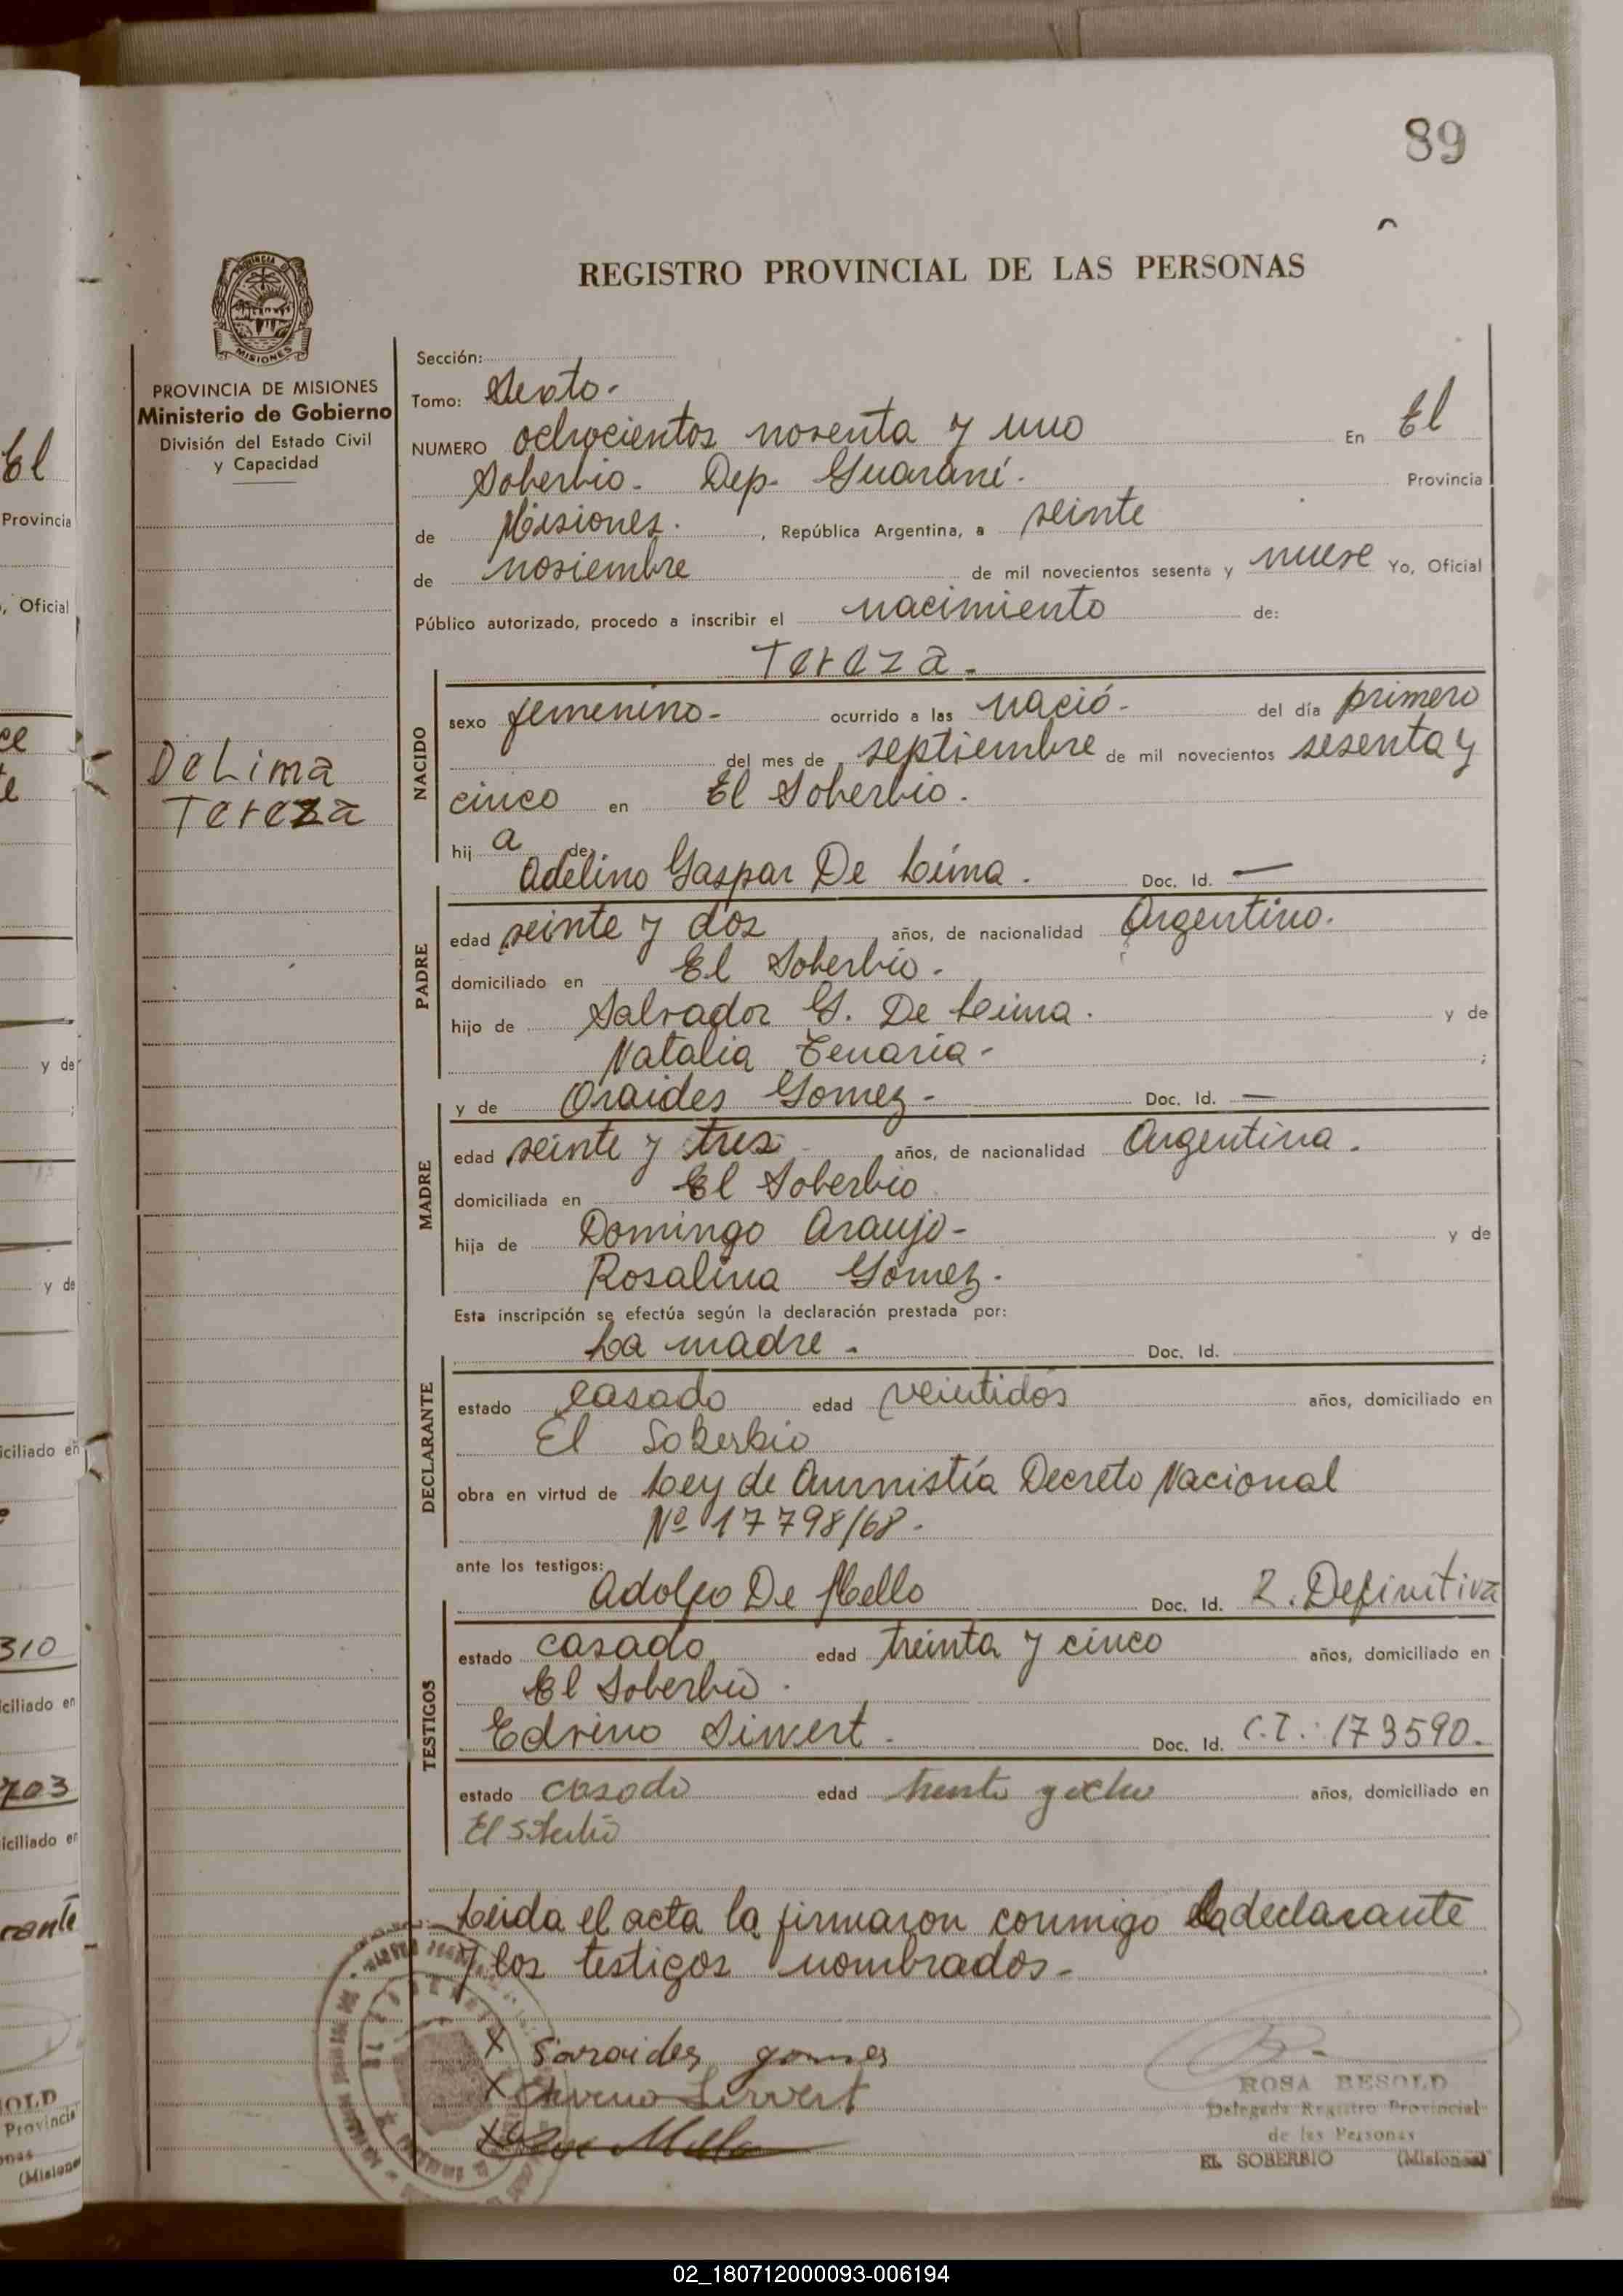 89
REGISTRO PROVINCIAL DE LAS PERSONAS
PROVINCIA DE
MISIONES
PROVINCIA DE MISIONES
Ministerio de Gobierno
División del Estado Civil
y Capacidad
De Lima
Tereza
Sección:
Tomo: Sexto.
NUMERO ochocientos noventa y uno En El
Soberbio. Dep. Guaraní. Provincia
de Misiones. , República Argentina, a veinte
de noviembre de mil novecientos sesenta y nueve Yo, Oficial
Público autorizado, procedo a inscribir el nacimiento de:
Tereza.
NACIDO
sexo femenino- ocurrido a las nació- del día primero
del mes de septiembre de mil novecientos sesenta y
cinco en El Soberbio.
hij a de
Adelino Gaspar De Lima. Doc. Id. —
PADRE
edad veinte y dos años, de nacionalidad Argentino.
domiciliado en El Soberbio.
hijo de Salvador G. De Lima. y de
Natalia Tenaria- ;
y de Oraides Gomez- Doc. Id. —
MADRE
edad veinte y tres años, de nacionalidad Argentina.
domiciliada en El Soberbio
hija de Domingo Araujo- y de
Rosalina Gomez.
Esta inscripción se efectúa según la declaración prestada por:
La madre. Doc. Id.
DECLARANTE
estado casado edad veintidós años, domiciliado en
El Soberbio
obra en virtud de Ley de Amnistía Decreto Nacional
Nº 17798/68.
ante los testigos:
Adolfo De Mello Doc. Id. 2. Definitiva
TESTIGOS
estado casado edad treinta y cinco años, domiciliado en
El Soberbio.
Edvino Siwert. Doc. Id. C.I.: 173590.
estado casado edad treinta y ocho años, domiciliado en
El Soberbio
Leida el acta la firmaron conmigo la declarante
y los testigos nombrados-
X Soraides gomes
X Sirvert
X
ROSA BESOLD
Delegada Registro Provincial
de las Personas
EL SOBERBIO (Misiones)
El
Provincia
, Oficial
y de
;
y de
iciliado en
310
iciliado en
703
iciliado en
rante
OLD
Provincial
onas
(Misiones
02_180712000093-006194